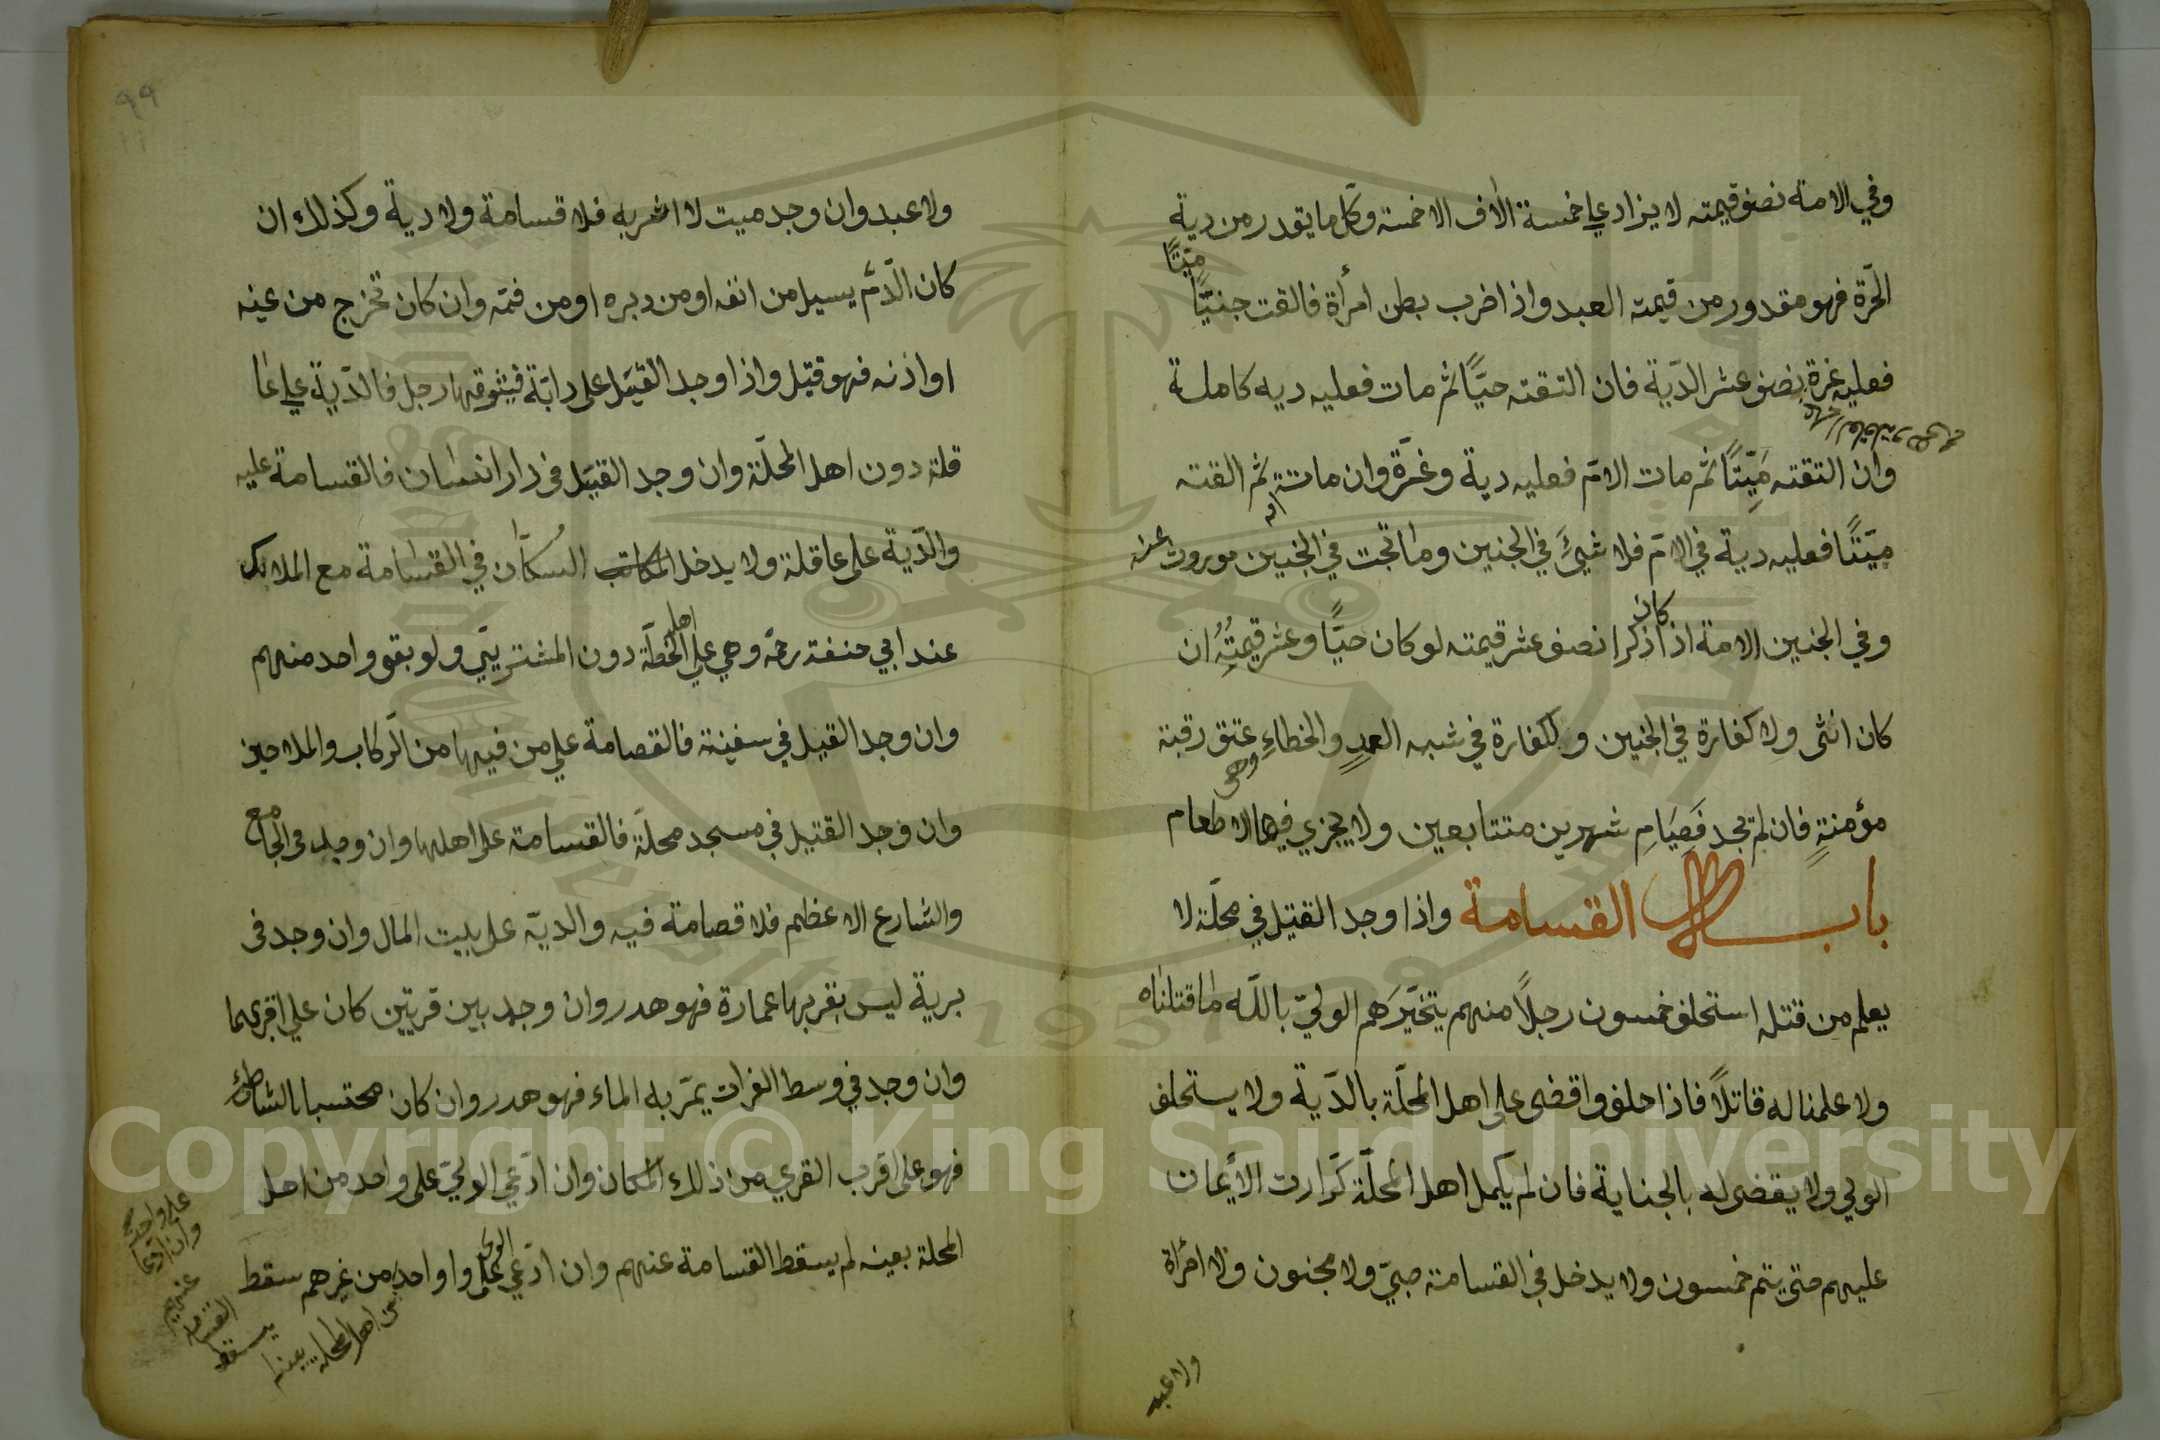 وفي الامة نصف قيمته لا يزاد علي خمسة الاف الا خمسة وكل ما يقدر من دية
الحرّة فهو مقدور من قيمته العبد واذا ضرب بطن امرأة فالقت جنيّاً
ميّتاً
فعليه غرة نصف عشر الدّية فان التقته حيّاً ثم مات فعليه ديه كاملة
وان التقته مَيِّتاً ثم مات الامّ فعليه دية وغرّة وان ماتة ثم القته
ميّتاً فعليه دية في الامّ فلا شيئ في الجنين وما تجت في الجنين موروث عنه
كان
وفي الجنين الامة اذا ذكرا نصف عشر قيمته لو كان حيّاً وعشر قيمتِهُ ان
كان انثى ولا كفارة في الجنين والكفارة في شبه العمدِ والخطاءِ عتق رقبة
وهى
مؤمنةٍ فان لم يجد فَصِيَامِ شهرين متتابعين ولا يجزي فيها الا طعام
باب القسامة واذا وجد القتيل في محلّة لا
يعلم من قتله استحلف خمسون رجلاً منهم يتخيّرَهم الوليّ بالله ما قتلناه
ولا علمنا له قاتلاً فاذا حلفوا قضى على اهل المحلّة بالدّية ولا يستحلف
الولي ولا يقضى له بالجناية فان لم يكمل اهل المحلّة كرّارت الأيمان
عليهم حتى يتم خمسون ولا يدخل في القسامة صبيّ ولا مجنون ولا امرأة
ولا عبد
٩٩
ولا عبد وان وجد ميت لا اثر به فلا قسامة ولا دية وكذلك ان
كان الدّم يسيل من انفه او من دبره او من فمّه وان كان تخرج من عينه
او اذنه فهو قتيل واذا وجد القتيل على دابّة فيثوقها رجل فالدّية علي عا
قلة دون اهل المحلّة وان وجد القتيل في دار انسان فالقسامة عليه
والدّية على عاقلة ولا يدخل المكاتب السكّان في القسامة مع الملاك
اهل
عند ابي حنفة رحمّه وهي علي الخطّة دون المشتريّي ولو بقى واحد منهم
وان وجد القيل في سفينة فالقصامة علي من فيها من الرّكاب والملاحين
وان وجد القتيل في مسجد محلّة فالقسامة على اهلها وان وجد في الجامع
والشارع الاعظم فلا قصامة فيه والديّة على بيت المال وان وجد في
برية ليس بقربها عمارة فهو هدر وان وجد بين قريتين كان علي اقربهما
وان وجد في وسط الفرات يمرّ به الماء فهو هدر وان كان محتسبا بالشاطئ
فهو على اقرب القري من ذلك المكان وان ادّعي الوليّ على واحد من اهل
المحلة بعينه لم يسقط القسامة عنهم وان ادّعي الولى على واواحد من غيرهم سقط
على واحد
وان ادعا
من اهل المحلة بعينه
يسقط
القسامة
عنهم
Copyright © King Saud University
1957